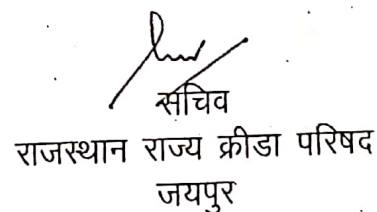 सचिव
राजस्थान राज्य क्रीडा परिषद
जयपुर